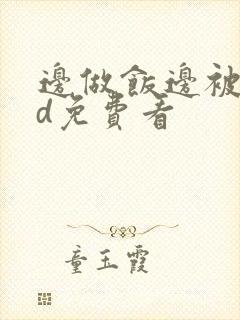 邊做飯邊被
d免費看
童玉霞